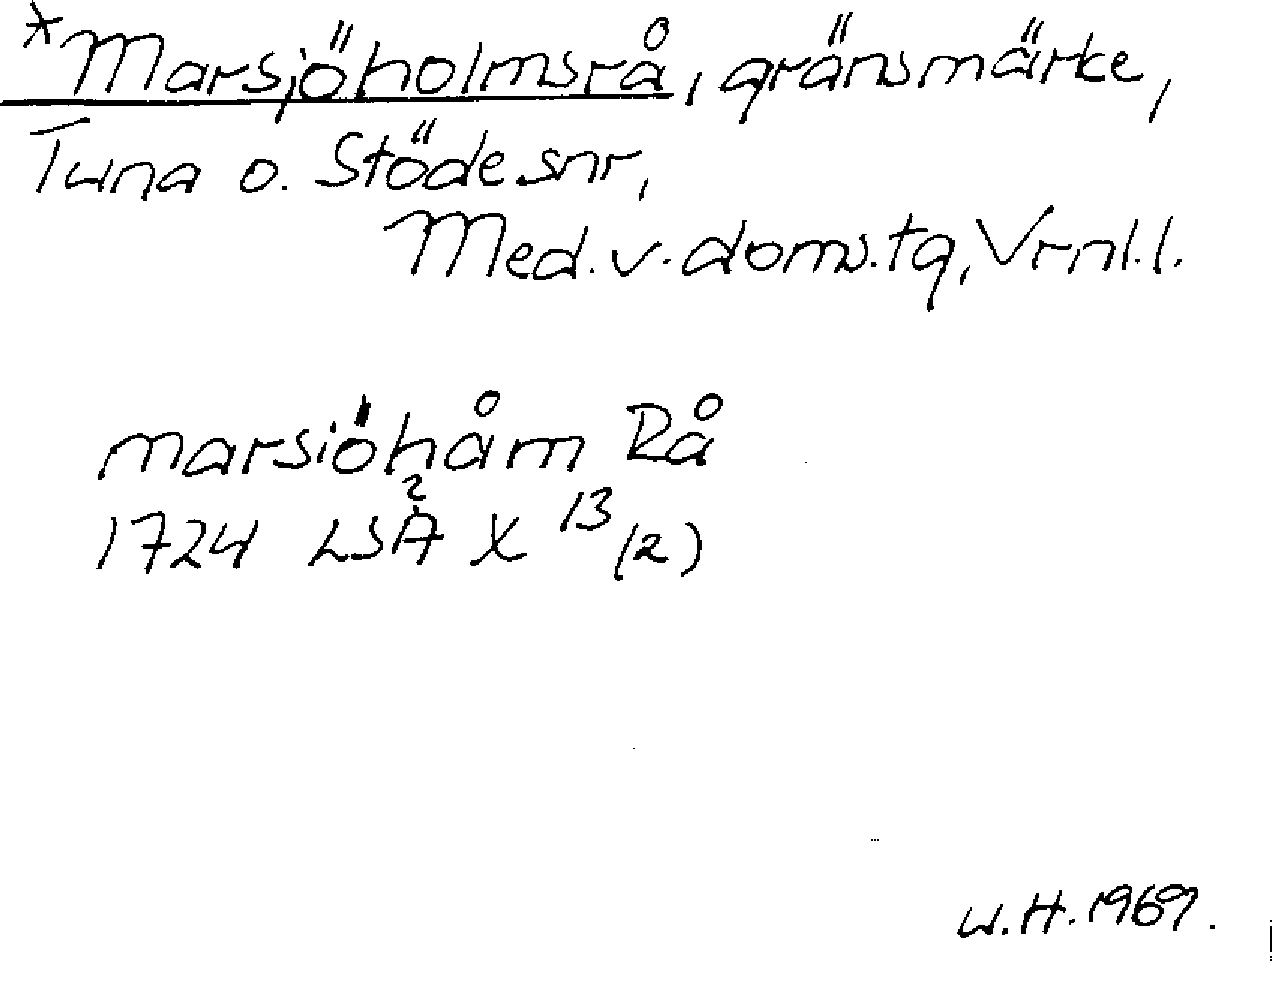 *Marsjöholmsrå, gränsmärke,
Tuna o. Stöde snr,
Med. v. doms. tg, Vrnl. l.
marsiöhåm Rå
1724 LSA X 13 (2)
W.H. 1969.